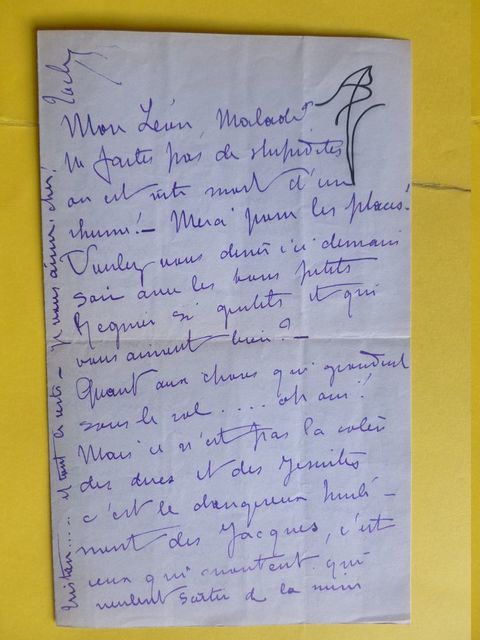 Mon Léon, Malade?
ne faites pas de stupidités
on est vite mort d'un
rhume! — Merci pour les places!
Voulez vous diner ici demain
soir avec les bons petits
Regnier si gentils et qui
vous aiment bien? —
Quant aux choses qui grondent
sous le sol .... oh oui!!
Mais ce n'est pas la colère
des ducs et des Jesuites
c'est le dangereux hurle-
ment des Jacques, c'est
ceux qui montent qui
veulent sortir de la mine
Tristan ..... et tout le reste — je vous aime, cher!